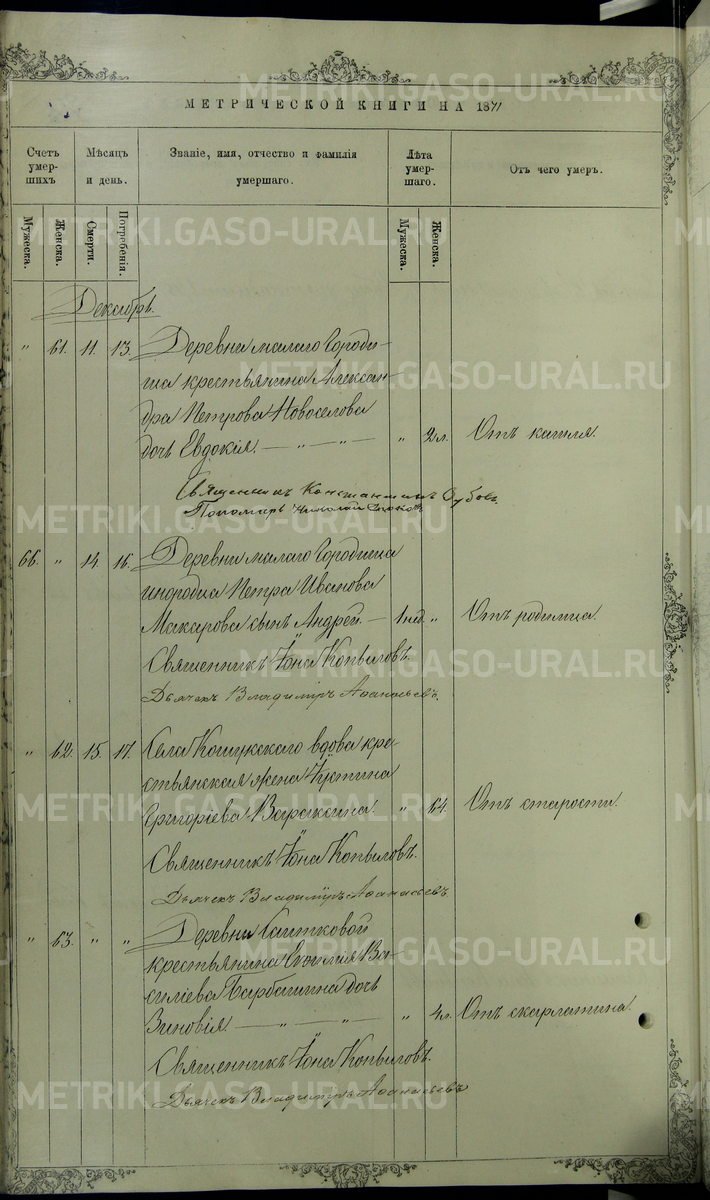 МЕТРИЧЕСКОЙ КНИГИ НА 1871
Счетъ умер- шихъ
Мѣсяцъ и день.
Званіе, имя, отчество и фамилія умершаго.
Лѣта умер- шаго.
Отъ чего умеръ.
Мужеска.
Женска.
Смерти.
Погребенія.
Мужеска.
Женска.
Декабрь.
" 61. 11. 13. Деревни малаго Городи-
ща крестьянина Алексан-
дра Петрова Новоселова
дочь Евдокія. — " — " — " 2 л. Отъ кашля.
Священникъ Константинъ Зубовъ.
Пономарь Николай
66. " 14. 16. Деревни малаго Городища
инородца Петра Иванова
Макарова сынъ Андрей. — 1 нед. " Отъ родимца.
Священникъ Іона Копыловъ.
Дьячекъ Владиміръ Аѳанасьевъ.
" 62. 15. 17. Села Кошукскаго вдова кре-
стьянская жена Іустина
Григоріева Вараксина. " 64. Отъ старости.
Священникъ Іона Копыловъ.
Дьячекъ Владиміръ Аѳанасьевъ
" 63. " " Деревни Саитковой
крестьянина Ва-
силіева дочь
Зиновія. — " — " — " 4 л. Отъ скарлатина.
Священникъ Іона Копыловъ.
Дьячекъ Владиміръ Аѳанасьевъ
METRIKI.GASO-URAL.RU
METRIKI.GASO-URAL.RU
METRIKI.GASO-URAL.RU
METRIKI.GASO-URAL.RU
METRIKI.GASO-URAL.RU
METRIKI.GASO-URAL.RU
METRIKI.GASO-URAL.RU
METRIKI.GASO-URAL.RU